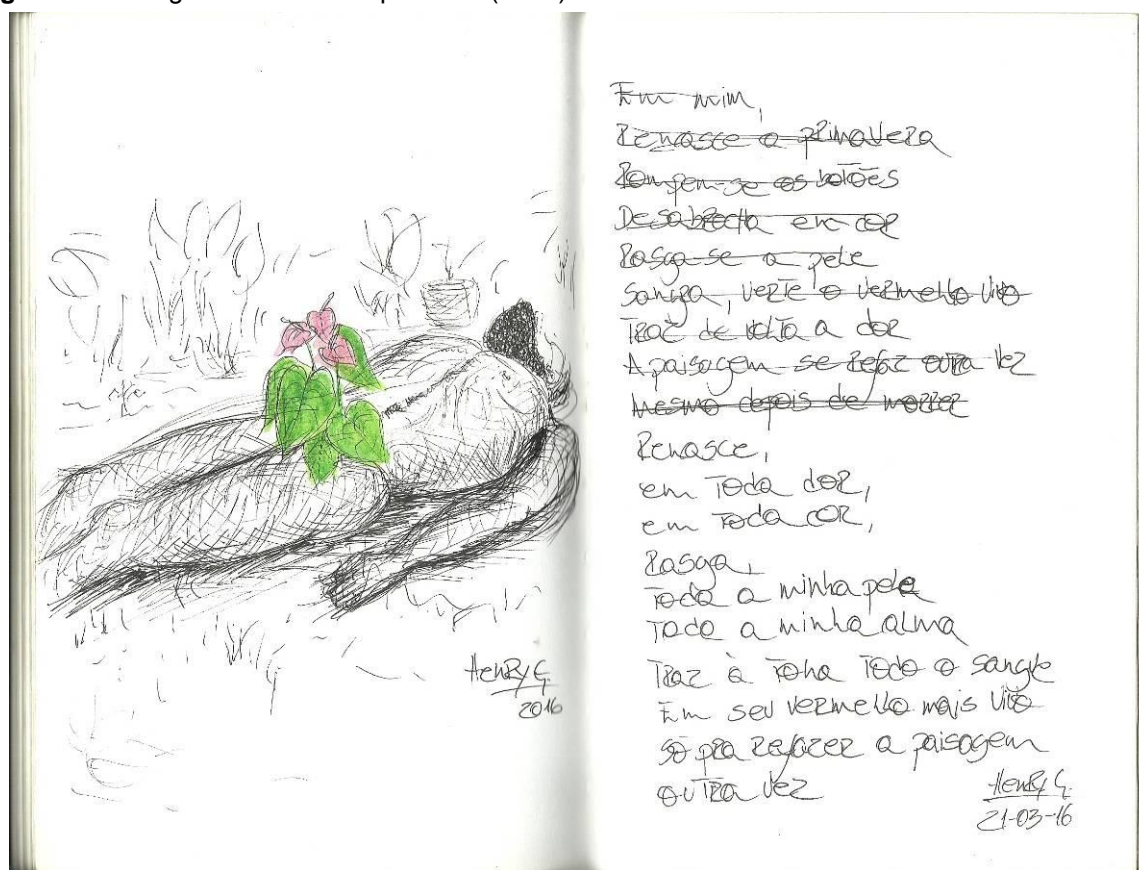 Henry G.
2016
Em mim,
Renasce a primavera
Rompem-se os botões
Desabrocha em cor
Rasga-se a pele
Sangra, verte o vermelho vivo
Traz de volta a dor
A paisagem se refaz outra vez
Mesmo depois de morrer
Renasce,
em toda dor,
em toda cor,
Rasga,
Toda a minha pele
Toda a minha alma
Traz à tona todo o sangue
Em seu vermelho mais vivo
só pra refazer a paisagem
outra vez
Henry G.
21-03-16